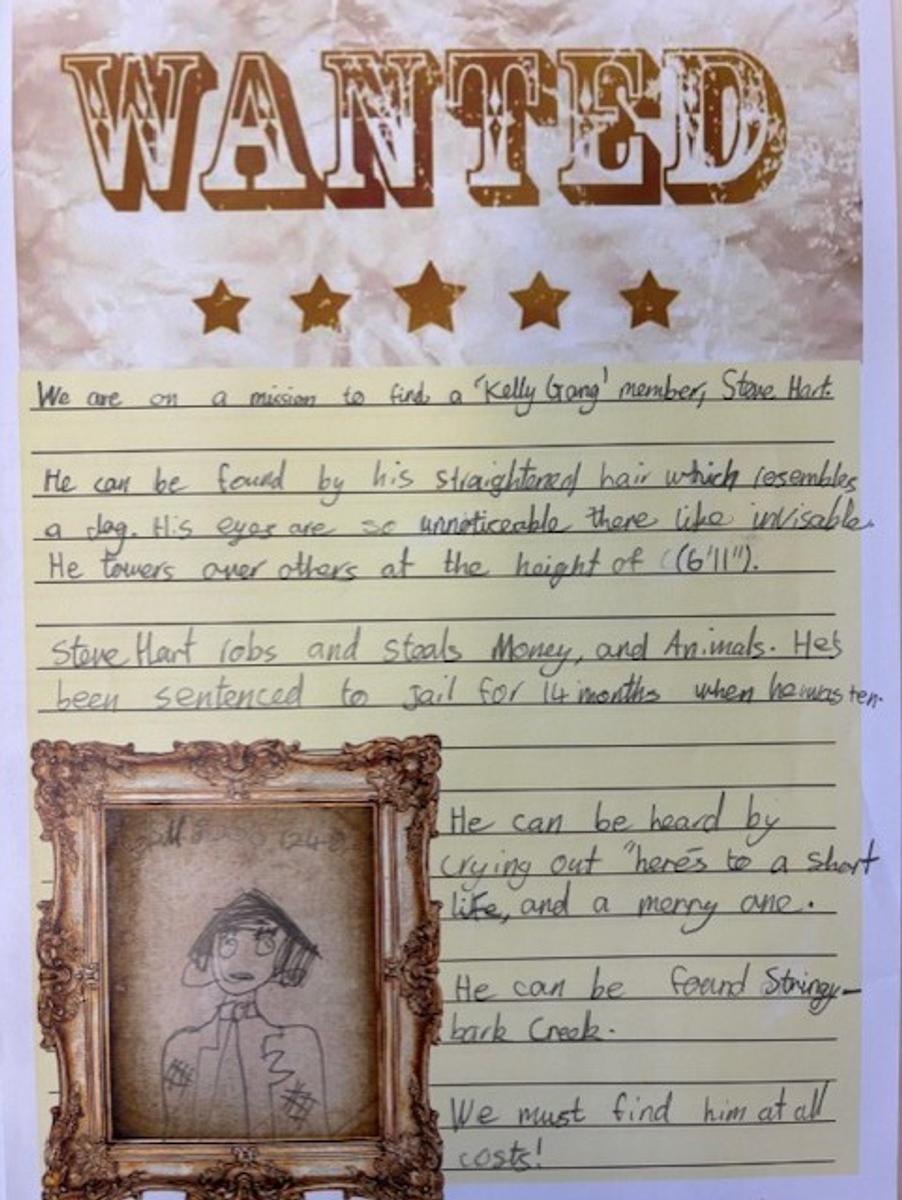 WANTED
We are on a mission to find a 'Kelly Gang' member, Steve Hart.
He can be found by his straightened hair which resembles
a dog. His eyes are so unnoticeable there like invisable.
He towers over others at the height of (6'11").
Steve Hart robs and steals Money, and Animals. He's
been sentenced to jail for 14 months when he was ten.
He can be heard by
crying out "here's to a short
life, and a merry one.
He can be found Stringy-
bark Creek.
We must find him at all
costs!